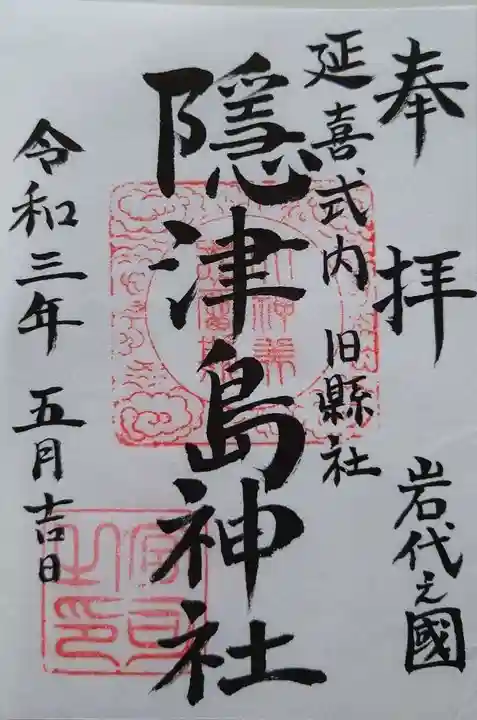 奉拝
岩代之國
延喜式内 旧縣社
隠津島神社
令和三年 五月吉日
宮司之印